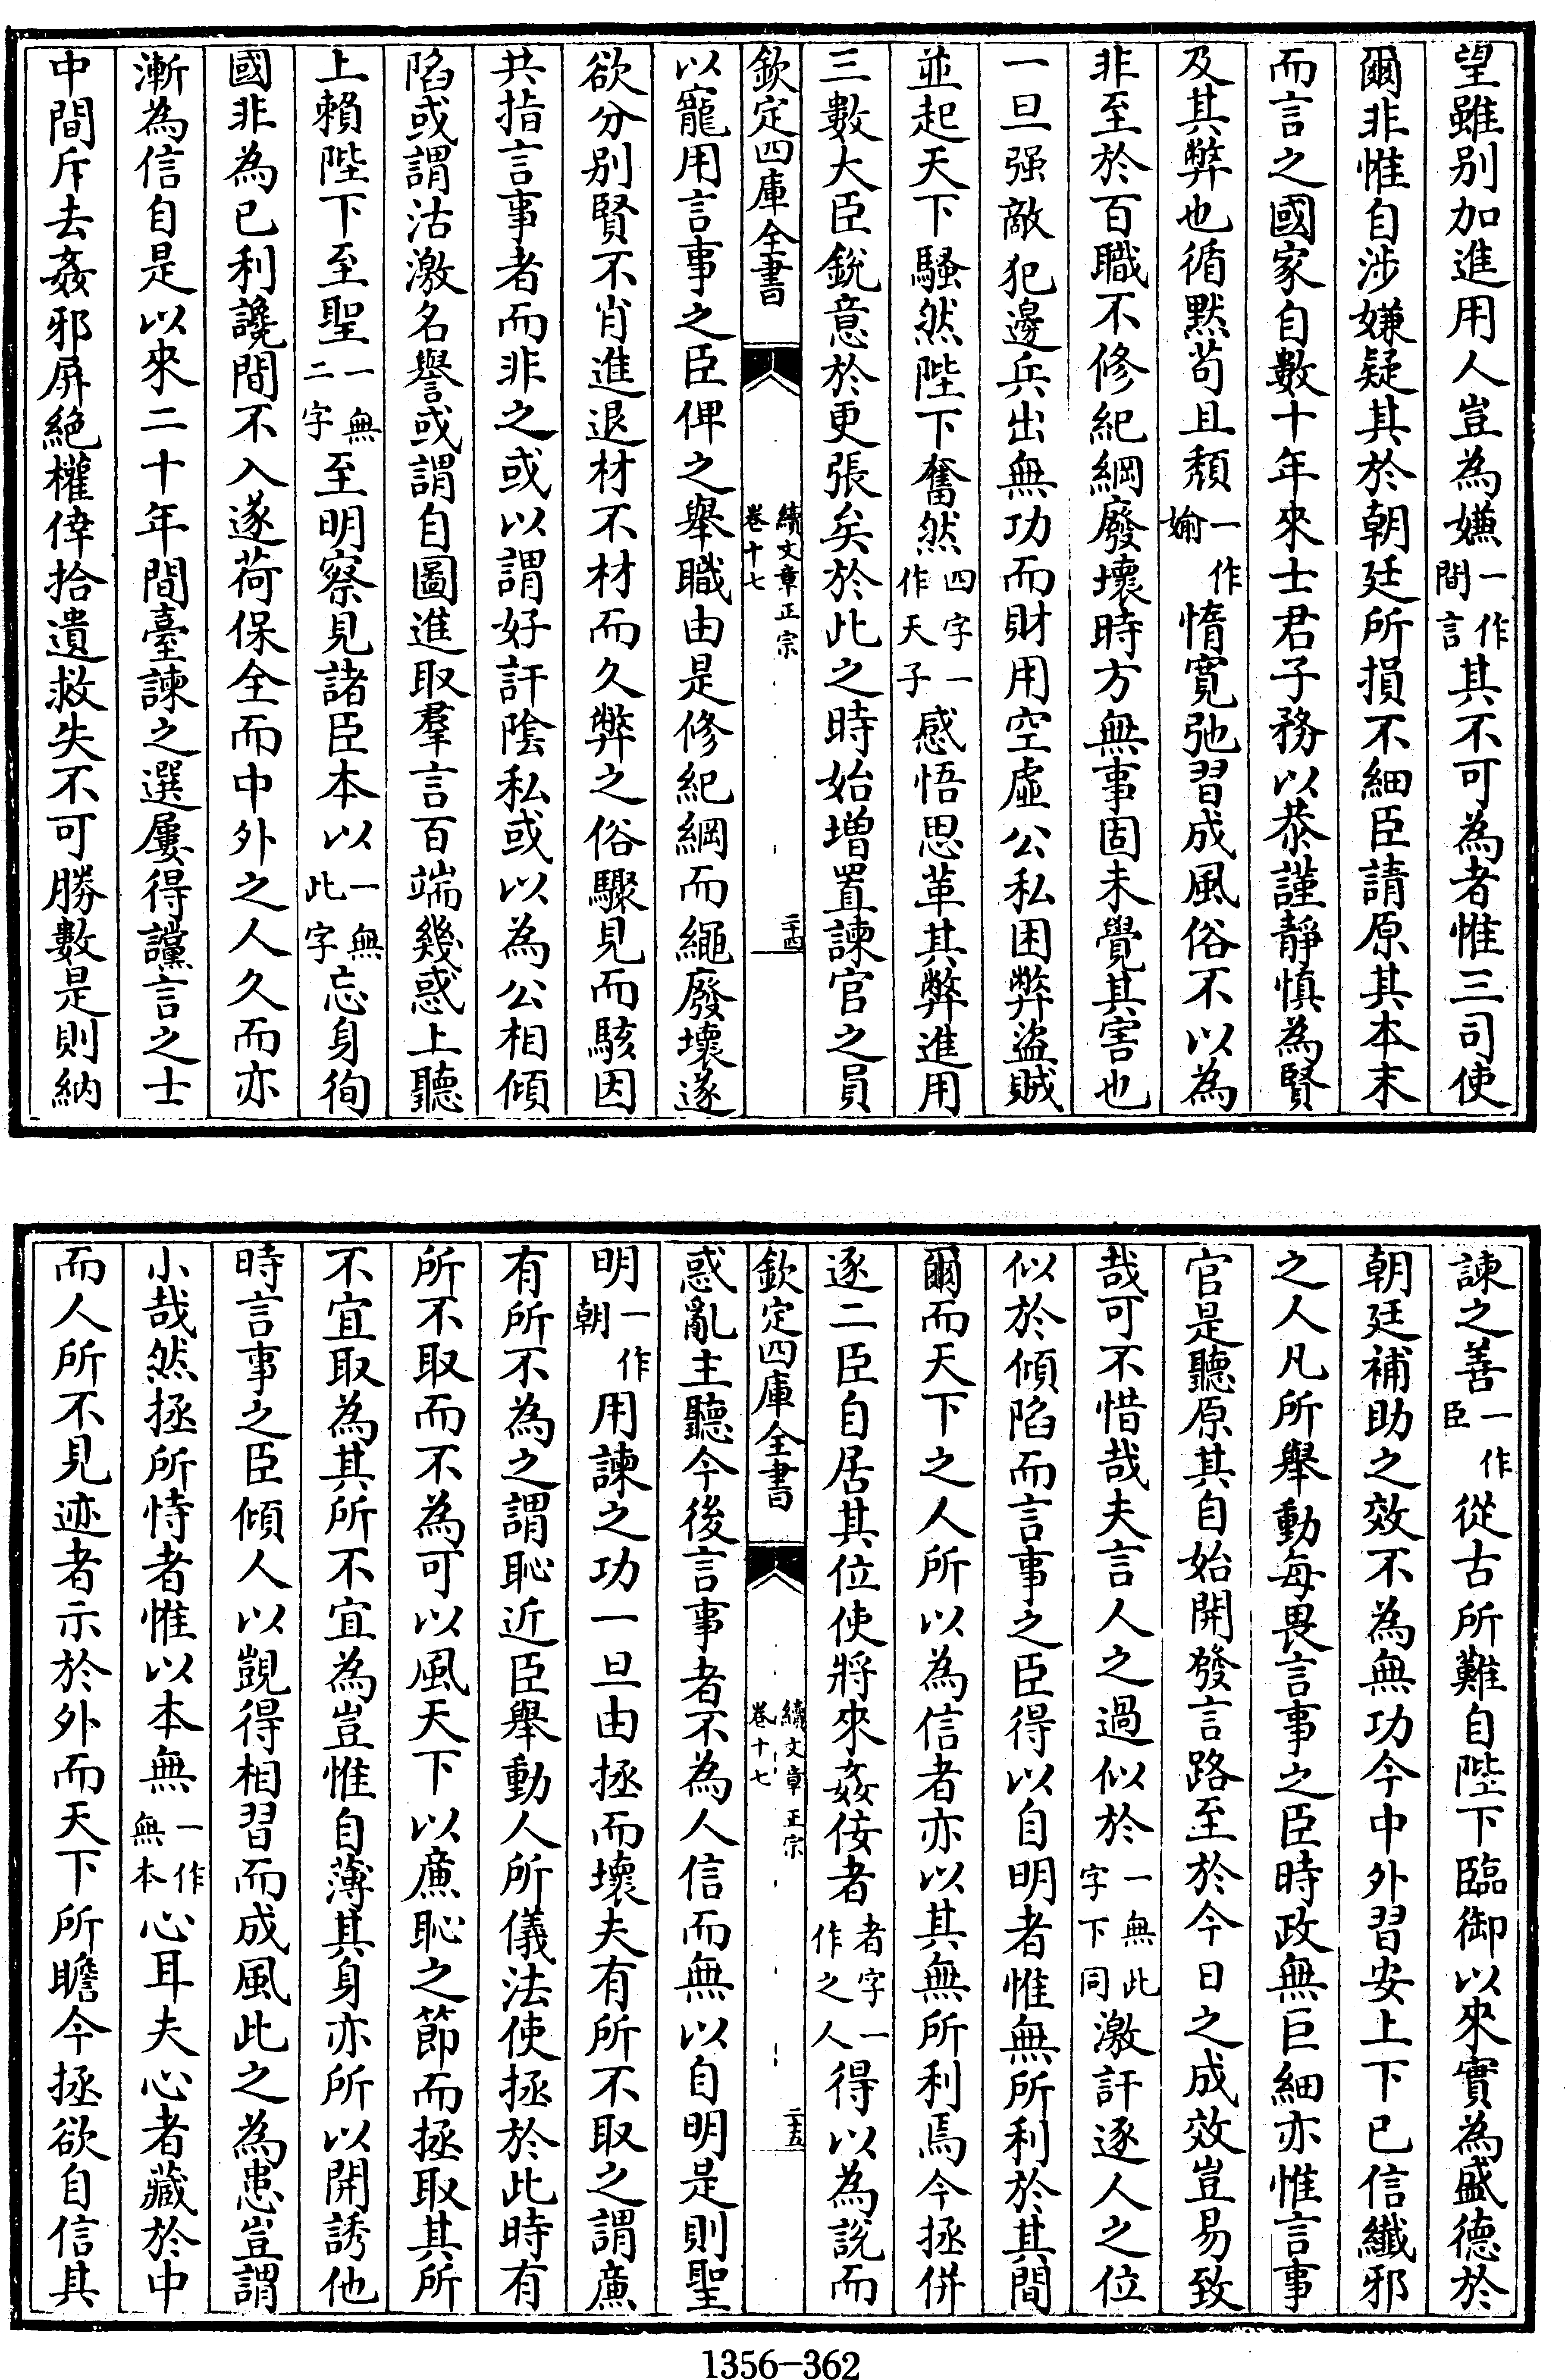 望雖别加進用人豈為嫌一作間言其不可為者惟三司使
爾非惟自涉嫌疑其於朝廷所損不細臣請原其本末
而言之國家自數十年來士君子務以恭謹靜慎為賢
及其弊也循黙苟且頽一作媮惰寛弛習成風俗不以為
非至於百職不修紀綱廢壞時方無事固未覺其害也
一旦强敵犯邊兵出無功而財用空虚公私困弊盜賊
並起天下騷然陛下奮然四字一作天子感悟思革其弊進用
三數大臣銳意於更張矣於此之時始增置諫官之員
欽定四庫全書
續文章正宗
卷十七
二十四
以寵用言事之臣俾之舉職由是修紀綱而繩廢壞遂
欲分别賢不肖進退材不材而久弊之俗驟見而駭因
共指言事者而非之或以謂好訐陰私或以為公相傾
陷或謂沽激名譽或謂自圖進取羣言百端幾惑上聽
上賴陛下至聖一無二字至明察見諸臣本以一無此字忘身徇
國非為已利讒間不入遂荷保全而中外之人久而亦
漸為信自是以來二十年間臺諫之選屢得讜言之士
中間斥去姦邪屏絶權倖拾遺救失不可勝數是則納
諫之善一作臣從古所難自陛下臨御以來實為盛德於
朝廷補助之效不為無功今中外習安上下已信纖邪
之人凡所舉動每畏言事之臣時政無巨細亦惟言事
官是聽原其自始開發言路至於今日之成效豈易致
哉可不惜哉夫言人之過似於一無此字下同激訐逐人之位
似於傾陷而言事之臣得以自明者惟無所利於其間
爾而天下之人所以為信者亦以其無所利焉今拯併
逐二臣自居其位使將來姦佞者者字一作之人得以為說而
欽定四庫全書
續文章正宗
卷十七
二十五
惑亂主聽今後言事者不為人信而無以自明是則聖
明一作朝用諫之功一旦由拯而壞夫有所不取之謂廉
有所不為之謂恥近臣舉動人所儀法使拯於此時有
所不取而不為可以風天下以廉恥之節而拯取其所
不宜取為其所不宜為豈惟自薄其身亦所以開誘他
時言事之臣傾人以覬得相習而成風此之為患豈謂
小哉然拯所恃者惟以本無一作無本心耳夫心者藏於中
而人所不見迹者示於外而天下所瞻今拯欲自信其
1356-362